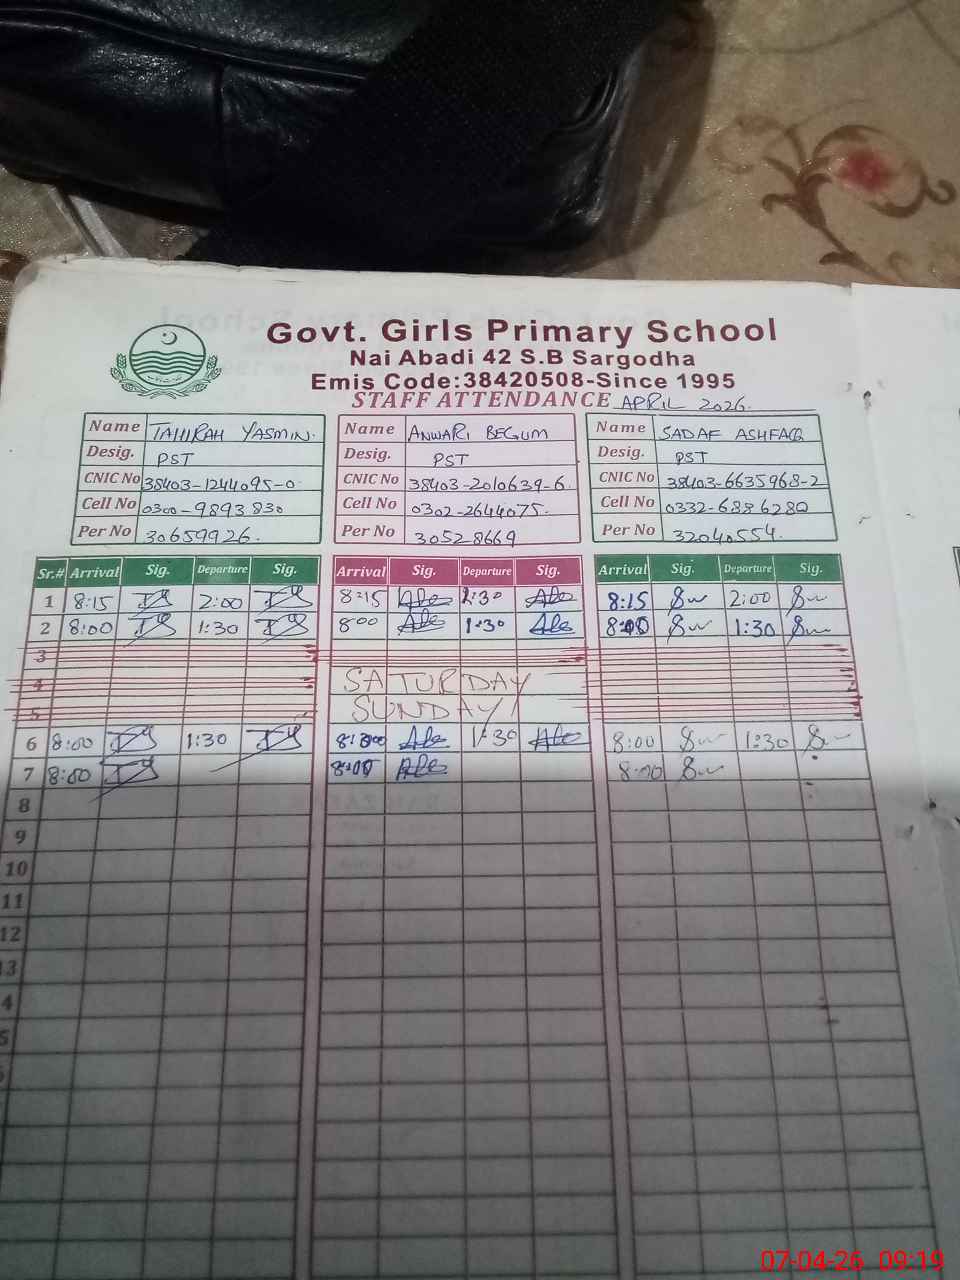 Govt. Girls Primary School
Nai Abadi 42 S.B Sargodha
Emis Code:38420508-Since 1995
STAFF ATTENDANCE APRIL 2026.
Name TAHIRAH YASMIN. Name ANWARI BEGUM Name SADAF ASHFAQ
Desig. PST Desig. PST Desig. PST
CNIC No 38403-1244095-0 CNIC No 38403-2010639-6 CNIC No 38403-6635968-2
Cell No 0300-9893830 Cell No 0302-2644075. Cell No 0332-6886280
Per No 30659926. Per No 30528669 Per No 32040554
Sr.# Arrival Sig. Departure Sig. Arrival Sig. Departure Sig. Arrival Sig. Departure Sig.
1 8:15 2:00 8:15 8:15 2:00
2 8:00 1:30 8:00 1:30 1:30
3
4 SATURDAY
5 SUNDAY
6 8:00 1:30 1:30 8:00 1:30
7 8:00 8:00
8
9
10
11
12
13
4
5
07-04-26 09:19